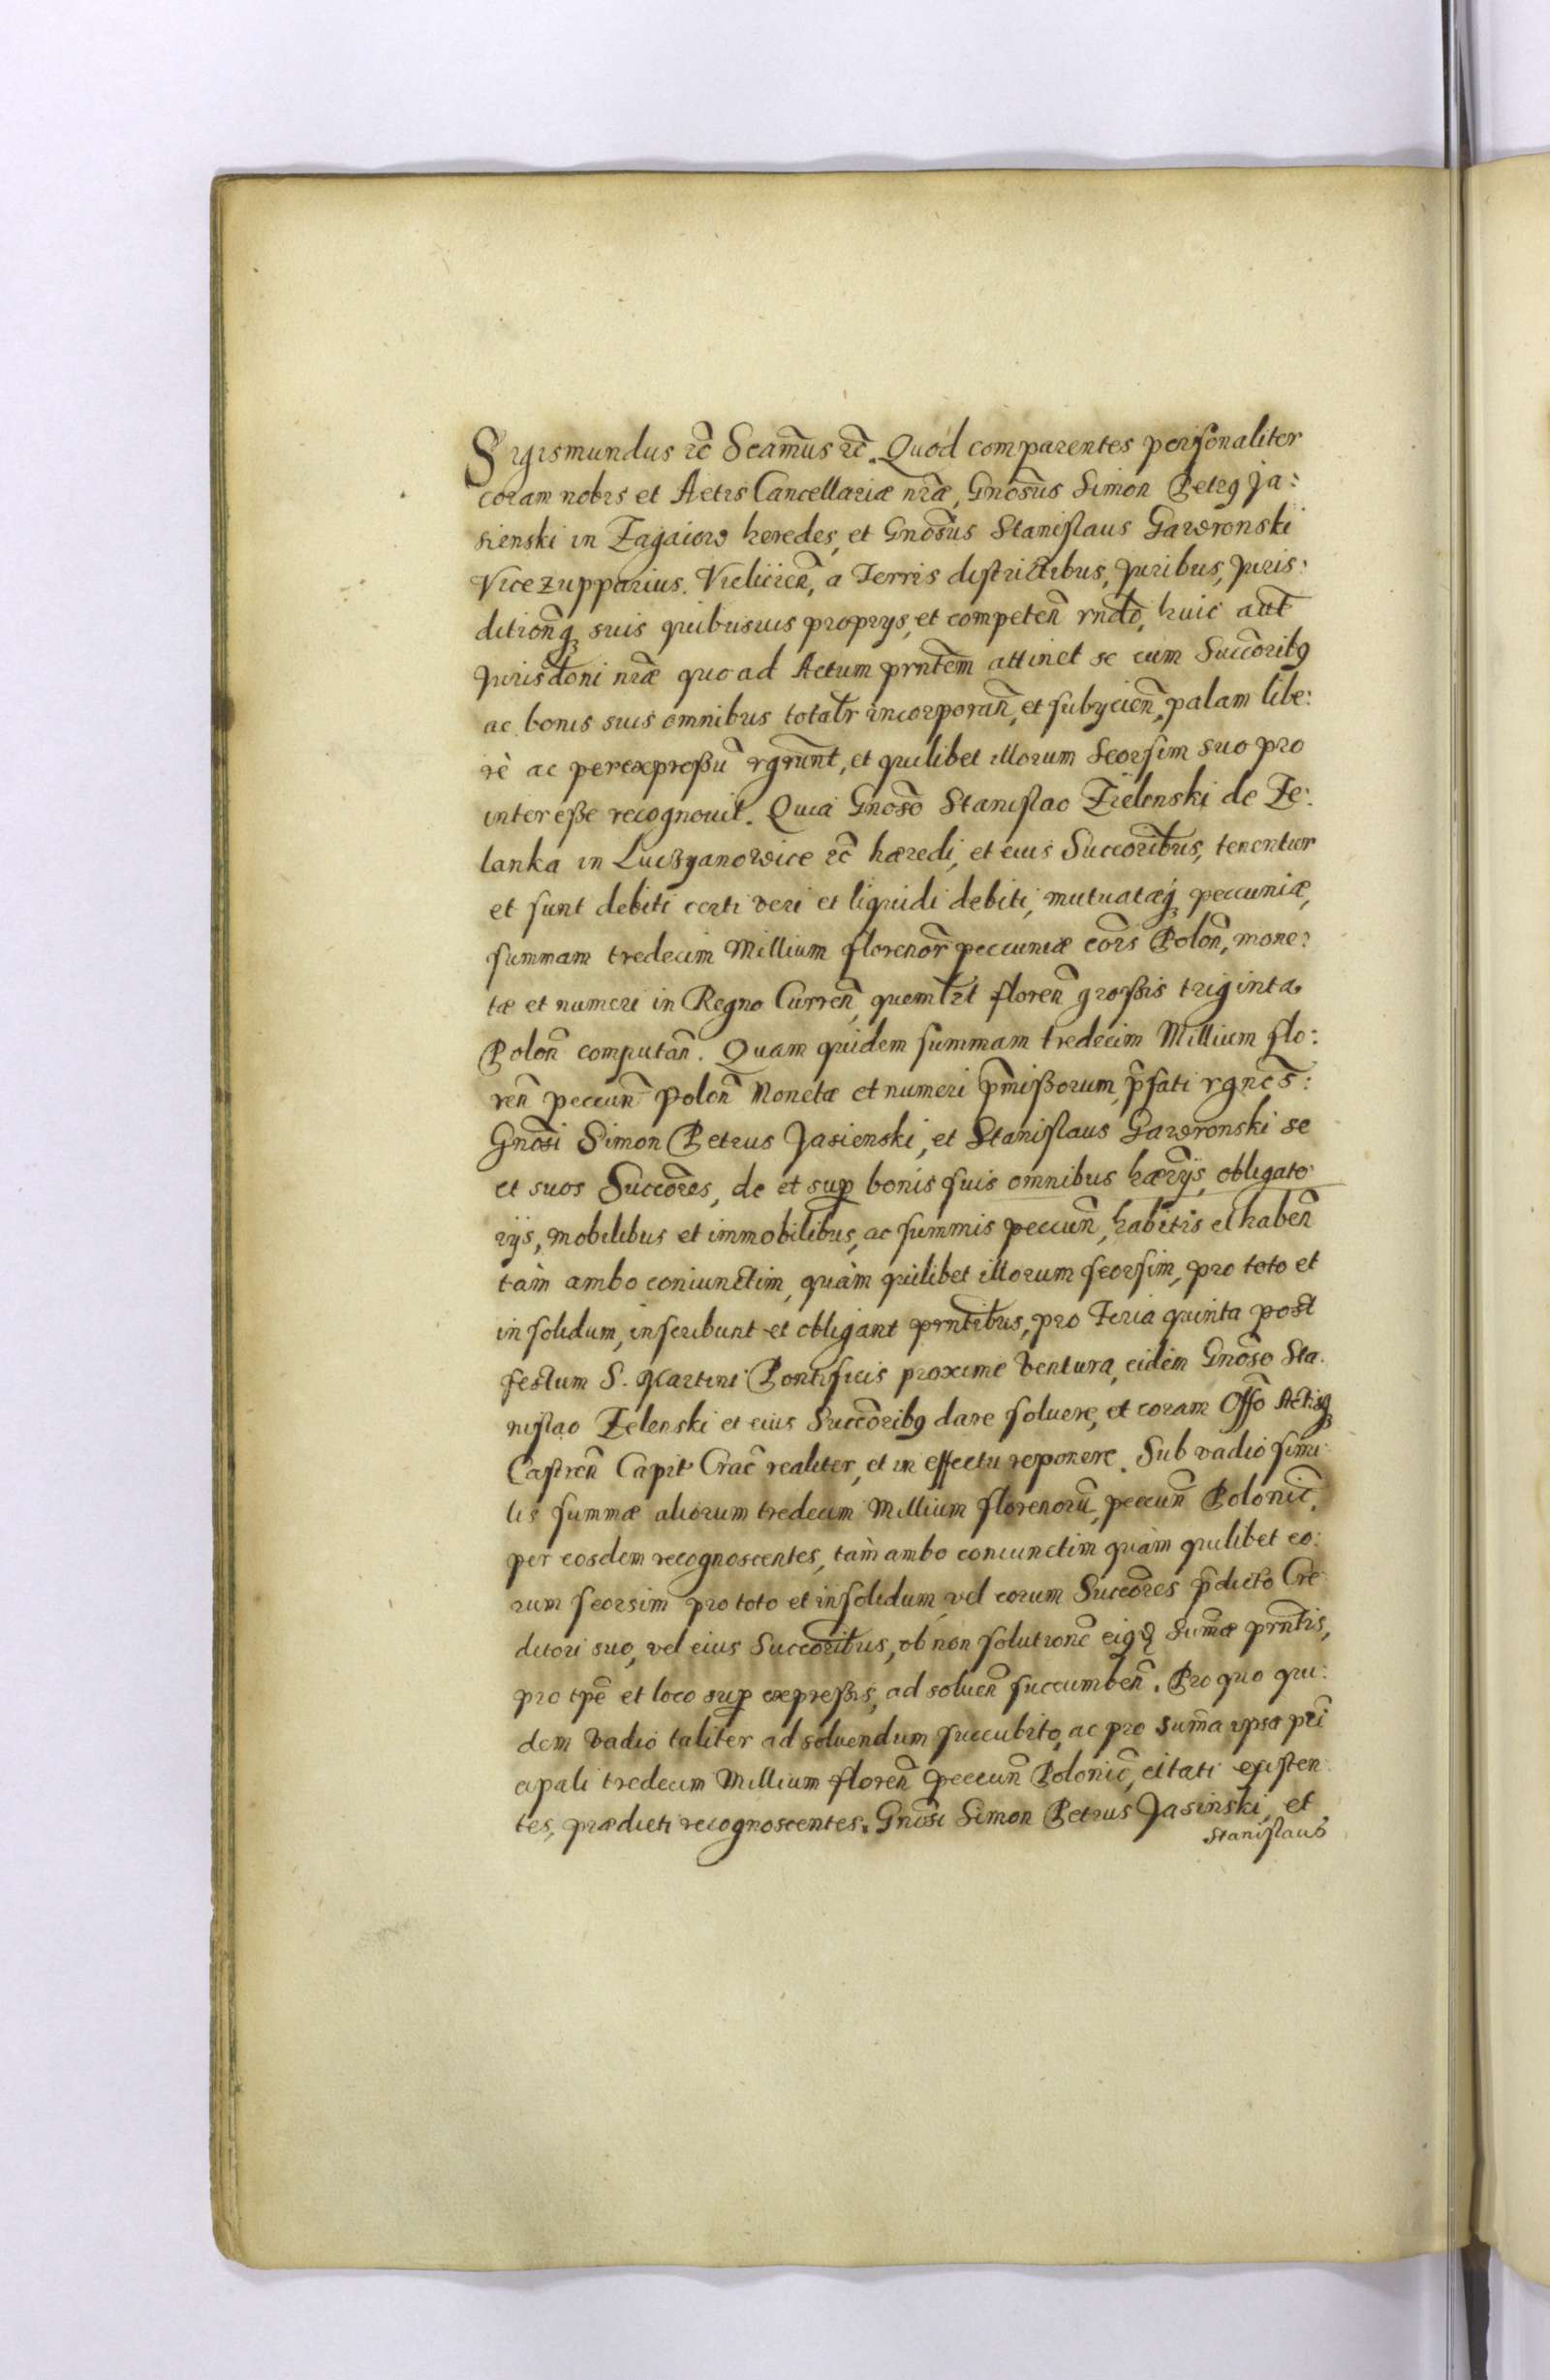 Sigismundus ꝛc̃ Scam̃us ꝛc̃. Quod comparentes personaliter
coram nobis et Actis Cancellariæ nr̃æ, Gnõsus Simon Petrꝰ Ja:
sienski in Zagaiow heredes, et Gnõsus Stanislaus Gawronski
Vicezupparius. Vieliciẽn, a Terris districtibus, Juribus, Juris:
ditiõnqꝫ suis quibusuis proprys, et competeñ rndõ, huic aũt
Jurisdõni nr̃æ quo ad Actum prnt̃em attinet se cum Succõribꝰ
ac bonis suis omnibus totalr̃ incorporañ, et subycieñ, palam libe:
rè ac per expreßũ rgrũnt, et quilibet illorum Seorsim suo pro
intereße recognouit. Quia Gnõso Stanislao Zielenski de Ze:
lanka in Luczyanowice ꝛc̃ hæredi, et eius Succorĩbus, tenentur
et sunt debiti certi veri et liquidi debiti, mutuatæqꝫ peccuniæ,
summam tredecim Millium florenor̃ peccuniæ cõis Poloñ, mone:
tæ et numeri in Regno Curreñ, quemlꝫt floreñ großis triginta
Poloñ computañ. Quam quidem summam tredecim Millium flo:
reñ peccuñ Poloñ Monetæ et numeri p̃mißorum, p̃fati rgnc̃s:
Gnõsi Simon Petrus Jasienski, et Stanislaus Gawronski se
et suos Succõres, de et suꝑ bonis suis omnibus hær̃ijs, obligato
rijs, mobilibus et immobilibus, ac summis peccuñ, habitis et habeñ
tàm ambo coniunctim, quàm quilibet illorum seorsim, pro toto et
in solidum, inscribunt et obligant prnt̃ibus, pro Feria quinta post
festum S. Martini Pontificis proxime Ventura, eidem Gnõso Sta:
nislao Zelenski et eius Succõribꝰ dare soluere, et coram Off̃o Actisqꝫ
Castreñ Capit̃ Crac̃ realiter, et in effectu reponere. Sub vadio simi
lis summæ aliorum tredecim Millium florenorũ, peccuñ Polonic̃,
per eosdem recognoscentes, tàm ambo coniunctim quàm quilibet eo:
rum seorsim pro toto et in solidum, vel eorum Succõres p̃dicto Cre
ditori suo, vel eius Succorĩbus, ob non solutionẽ eiꝰd Sum̃æ prnt̃is,
pro tp̃e et loco suꝑ expreßis, ad solueñ succumbeñ. Pro quo qui:
dem Vadio taliter ad soluendum succubito, ac pro Sum̃a ipsa pri
cipali tredecim Millium floreñ peccuñ Polonic̃, citati existen
tes, prædicti recognoscentes. Gnõsi Simon Petrus Jasinski, et
Stanislaus